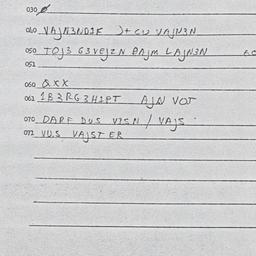 030 Ø
040 VAJN3NDIF )+CU VAJN3N
050 TOJ3 G3VEJZN PAJM LAJN3N
051
060 QXX
061 1B2RG3H1PT AJN VOT
070 DARF DUS VISN / VAJS
071 VUS VAJST ER